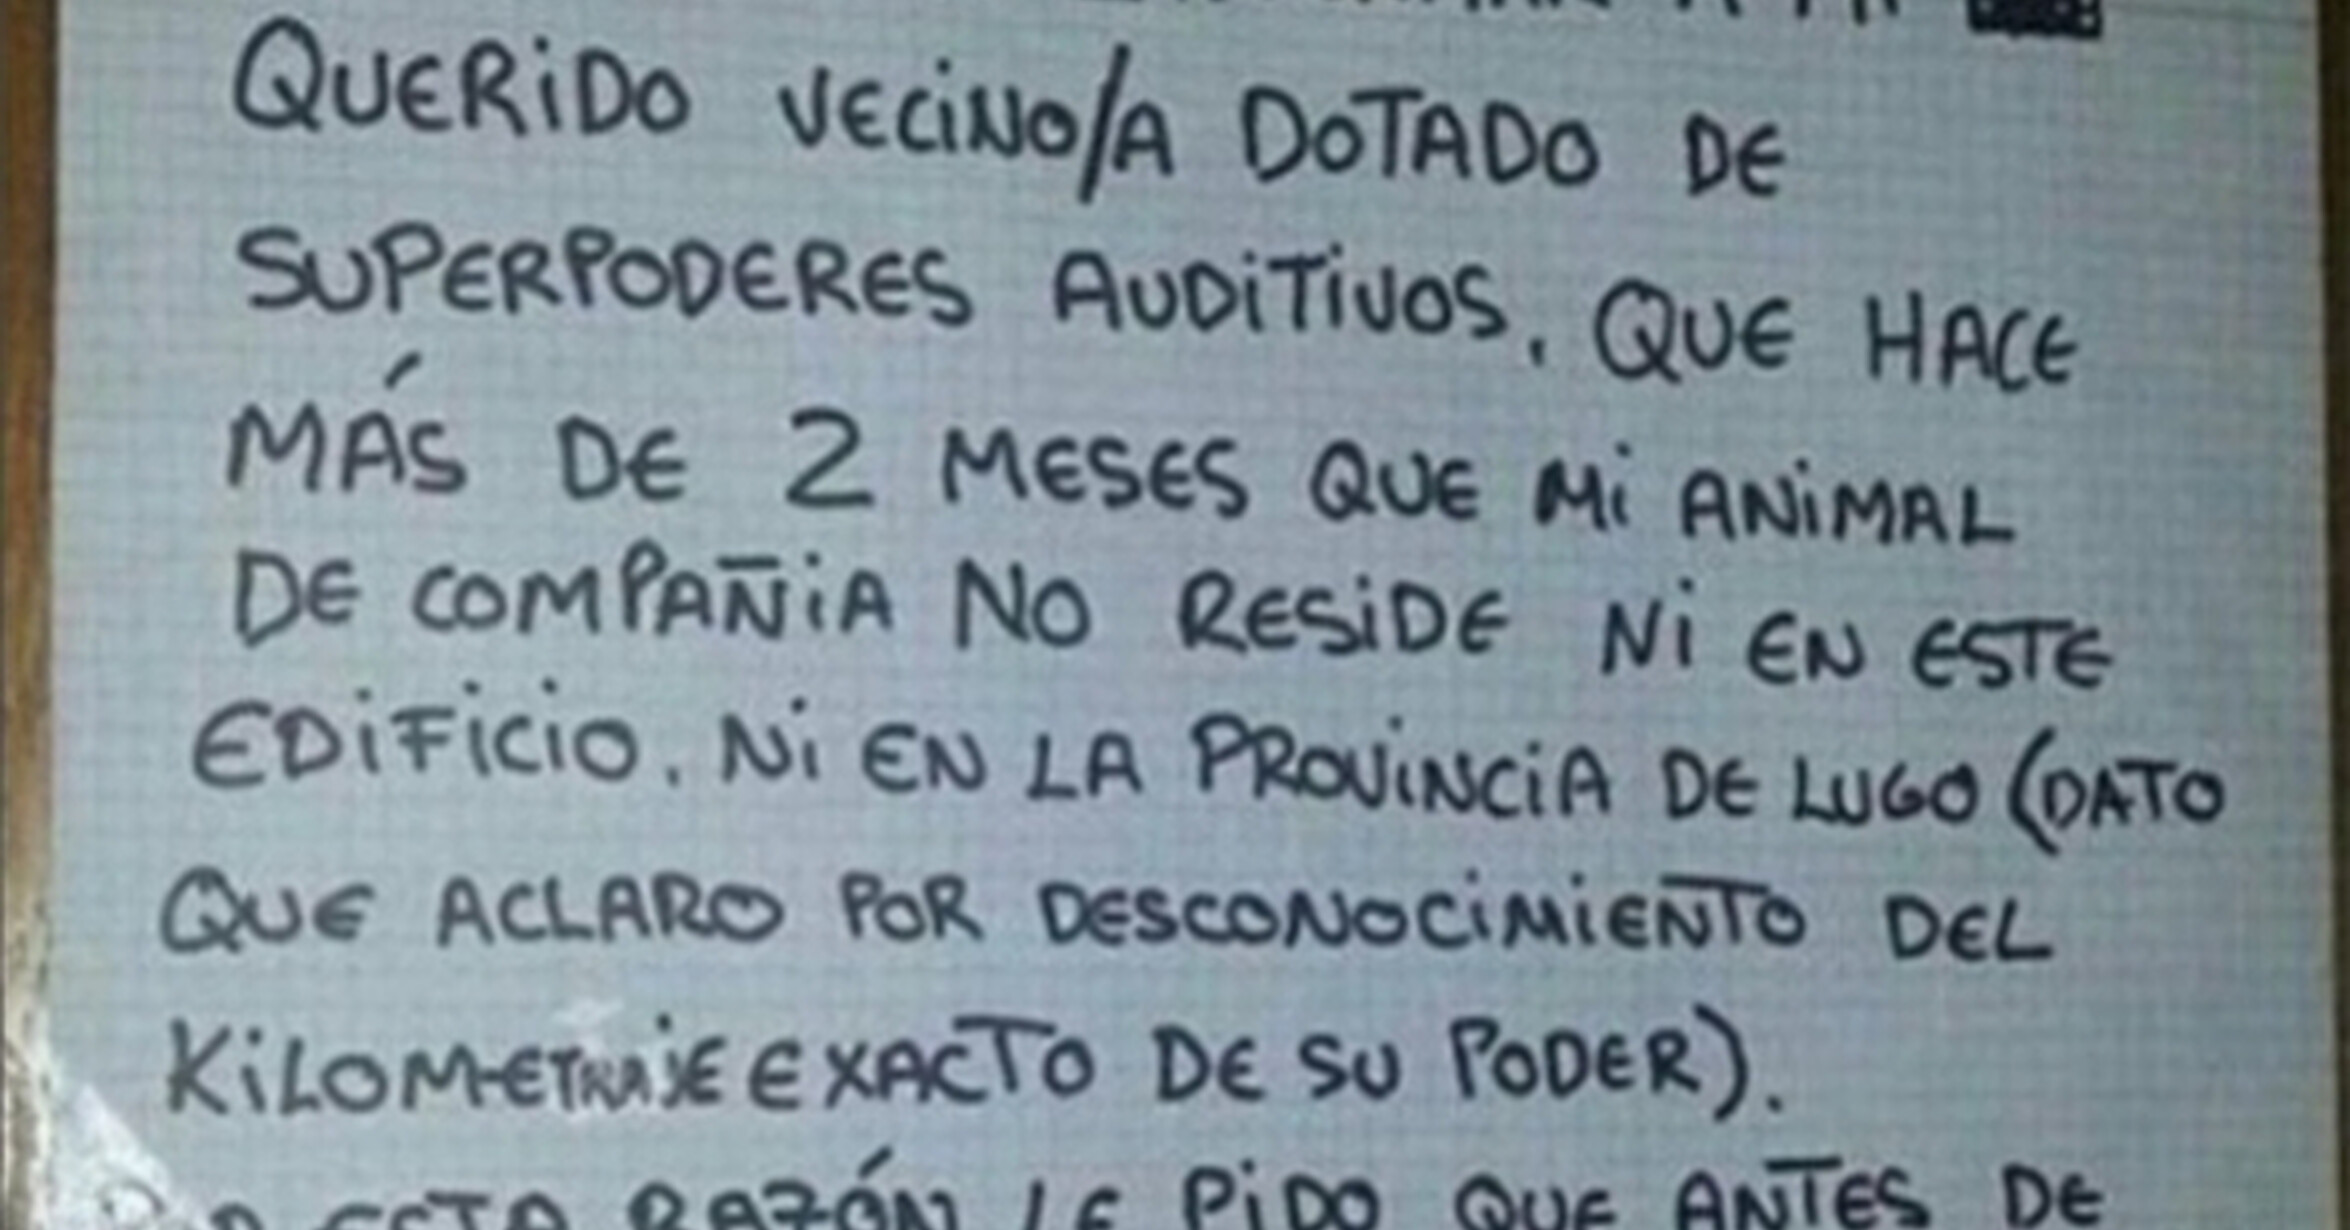 QUERIDO VECINO/A DOTADO DE
SUPERPODERES AUDITIVOS. QUE HACE
MÁS DE 2 MESES QUE MI ANIMAL
DE COMPAÑIA NO RESIDE NI EN ESTE
EDIFICIO. NI EN LA PROVINCIA DE LUGO (DATO
QUE ACLARO POR DESCONOCIMIENTO DEL
KILOMETRAJE EXACTO DE SU PODER).
ESTA RAZÓN LE PIDO QUE ANTES DE